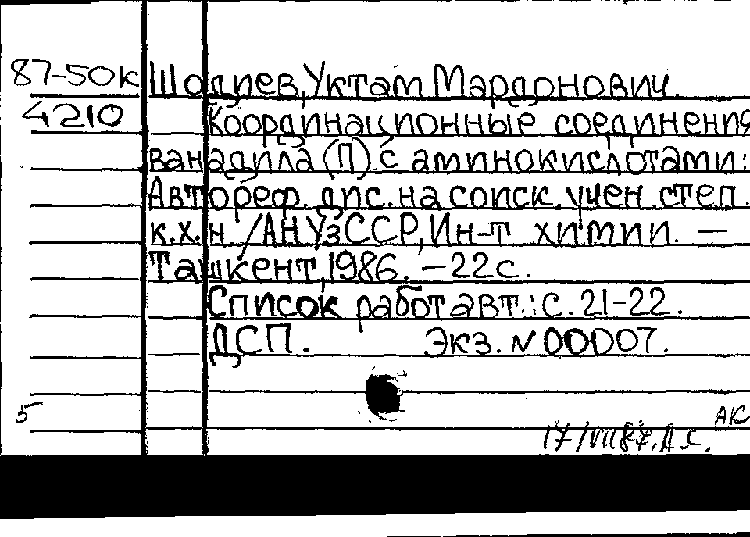 87-50к Шодиев, Уктам Мардонович.
4210 Координационные соединения
ванадила (II) с аминокислотами:
Автореф. дис. на соиск. учен. степ.
к.х.н. /АН УзССР, Ин-т химии. —
Ташкент, 1986. — 22 с.
Список работ авт.: с. 21-22.
ДСП. Экз. N 00007.
5 АК
17/VII87.